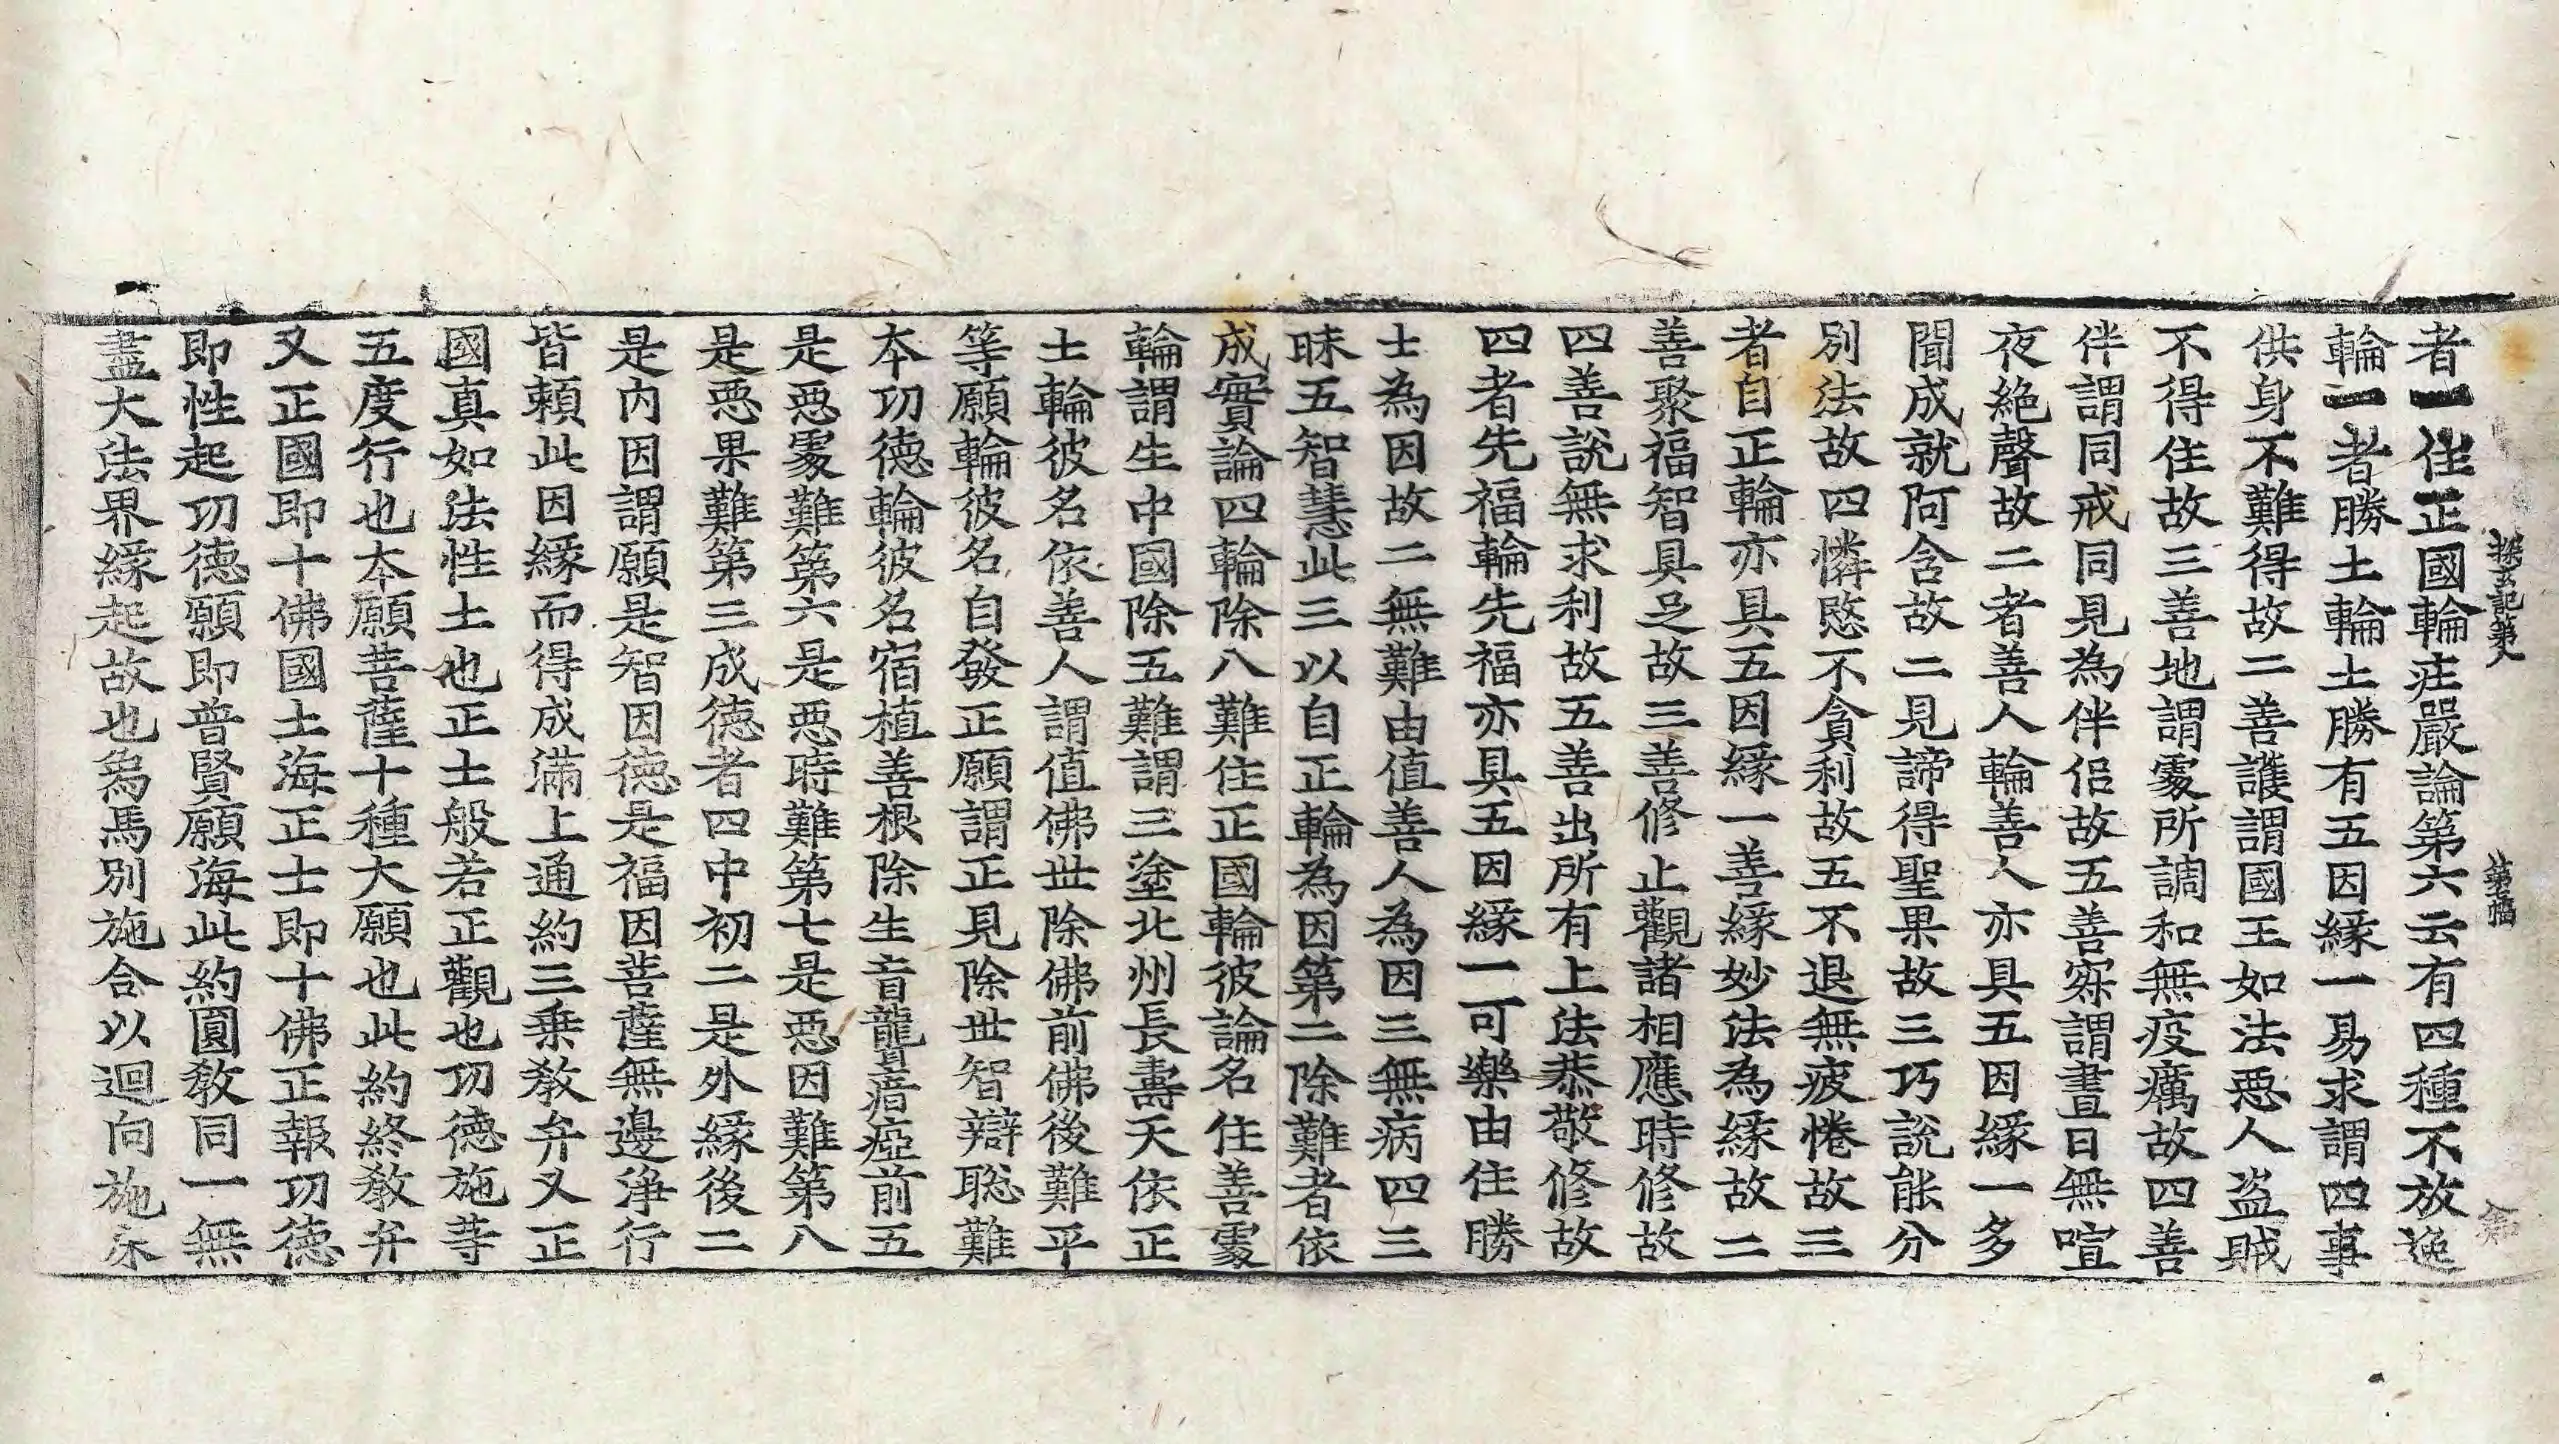 探玄記第八
者一住正國輪莊嚴論第六云有四種不放逸
輪一者勝土輪土勝有五因緣一易求謂四事
供身不難得故二善護謂國王如法惡人盜賊
不得住故三善地謂處所調和無疫癘故四善
伴謂同戒同見為伴侶故五善寂謂晝日無喧
夜絕聲故二者善人輪善人亦具五因緣一多
聞成就阿含故二見諦得聖果故三巧說能分
別法故四憐愍不貪利故五不退無疲惓故三
者自正輪亦具五因緣一善緣妙法為緣故二
善聚福智具足故三善修止觀諸相應時修故
四善說無求利故五善出所有上法恭敬修故
四者先福輪先福亦具五因緣一可樂由住勝
士為因故二無難由值善人為因三無病四三
昧五智慧此三以自正輪為因第二除難者依
成實論四輪除八難住正國輪彼論名住善處
輪謂生中國除五難謂三塗北州長壽天依正
士輪彼名依善人謂值佛世除佛前佛後難平
等願輪彼名自發正願謂正見除世智辯聡難
本功德輪彼名宿植善根除生盲聾瘖瘂前五
是惡處難第六是惡時難第七是惡因難第八
是惡果難第三成德者四中初二是外緣後二
是內因謂願是智因德是福因菩薩無邊淨行
皆賴此因緣而得成滿上通約三乘教弁又正
國真如法性土也正士般若正觀也功德施等
五度行也本願菩薩十種大願也此約終教弁
又正國即十佛國土海正士即十佛正報功德
即性起功德願即普賢願海此約圓教同一無
盡大法界緣起故也為馬別施合以迴向施床